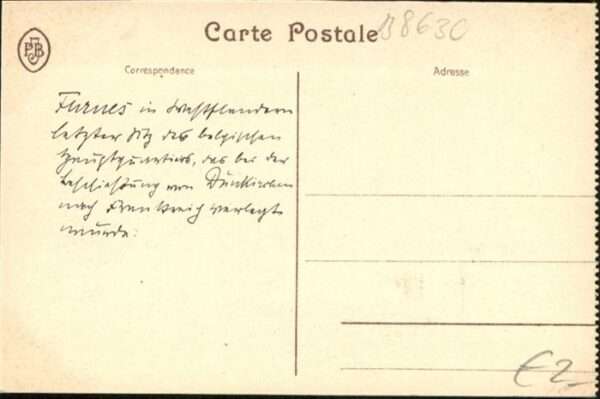 PJB
Carte Postale
B8630
Correspondance
Adresse
Furnes in Westflandern
letzter Sitz des belgischen
Hauptquartiers, das bei der
Beschießung von Dünkirchen
nach Frankreich verlegt
wurde.
€2-